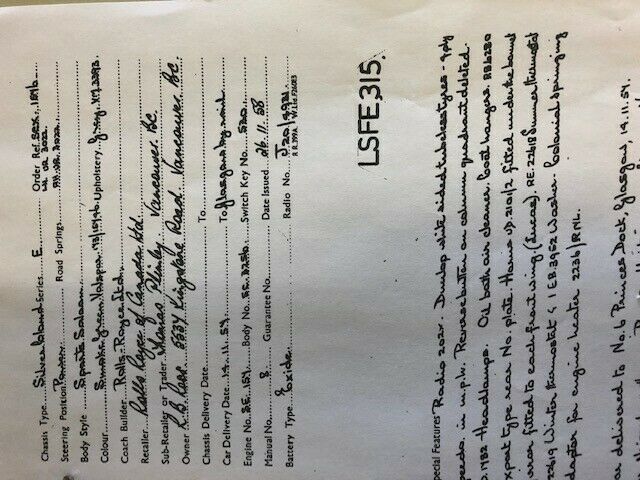 Chassis Type Silver Cloud Series E Order Ref. SCX. 1186
Steering Position Road Springs
Body Style Sports Saloon
Colour Smoke Green Upholstery Grey VM. 3393
Coach Builder Rolls-Royce Ltd.
Retailer Rolls Royce of Canada Ltd.
Sub-Retailer or Trader Thomas Plimley Vancouver BC.
Owner R.B. Ross 8537 Kingston Road. Vancouver B.C.
Chassis Delivery Date To
Car Delivery Date 14.11.59 To Glasgow by rail
Engine No. SE. 157 Body No. SC. 3256 Switch Key No.
Manual No. 8 Guarantee No. Date Issued 26.11.58
Battery Type Exide Radio No. J20/9921
LSFE,315.
pecial Features Radio 202X. Dunlop white sided tubeless tyres - 4 ply
peedo. in m.p.h. Reverse button on column quadrant deleted.
1982 Headlamps. Oil bath air cleaner. Coat hangers. RB6280
xport type rear No. plate. Horns UD. 210/2 fitted under the bonnet
fitted to each front wing (Lucas). RE. 22618 Summer thermostat
22619 Winter thermostat & 1 EB.3952 Washer. Colonial springing
daptor for engine heater 2236/RNL.
ar delivered to No. 6 Princes Dock, Glasgow, 14.11.59.